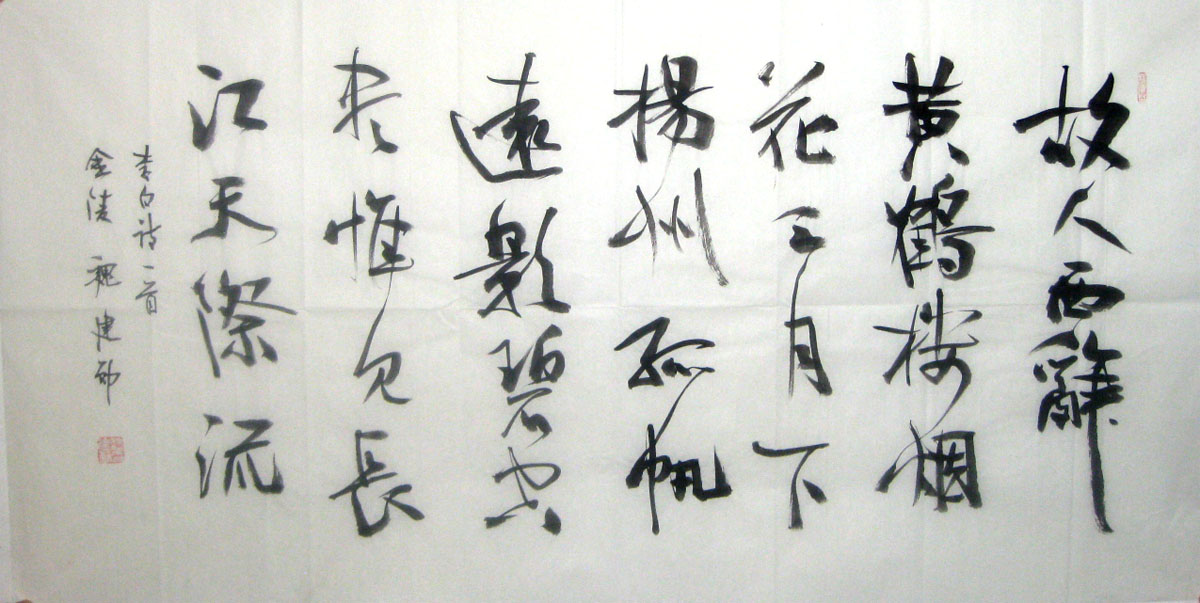 故人西辭
黃鶴楼烟
花三月下
揚州孤帆
遠影碧空
尽惟见長
江天際流
李白詩一首
金陵 魏建